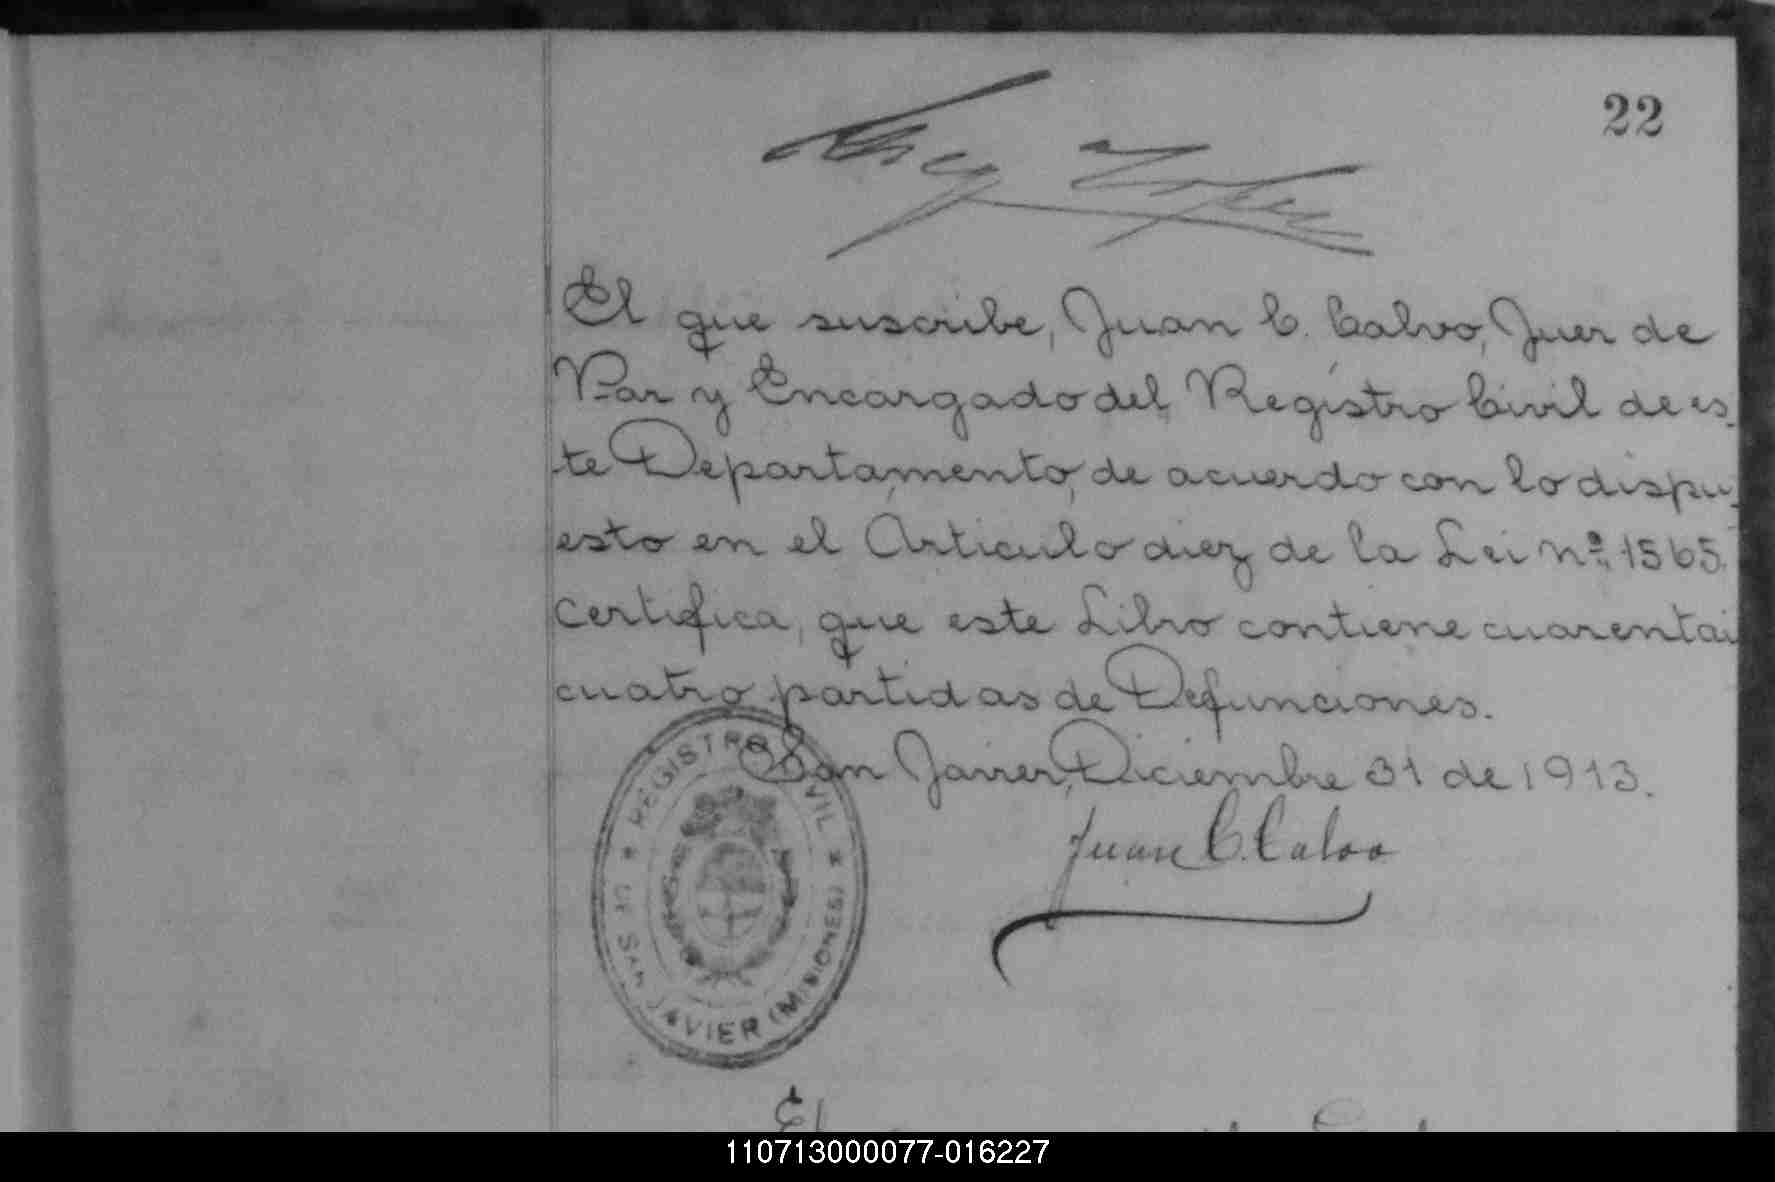 22
El que suscribe, Juan C. Calvo, Juez de
Paz y Encargado del Registro Civil de es-
te Departamento, de acuerdo con lo dispu-
esto en el Articulo diez de la Lei nº 1565.
Certifica, que este Libro contiene cuarentai
cuatro partidas de Defunciones.
San Javier, Diciembre 31 de 1913.
Juan C. Calvo
REGISTRO CIVIL
DE SAN JAVIER (MISIONES)
El
110713000077-016227